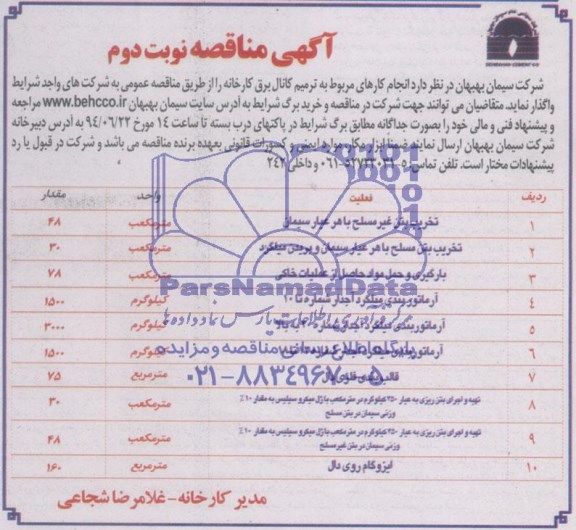 آگهی مناقصه نوبت دوم
BEHBAHAN CEMENT CO
شرکت سیمان بهبهان در نظر دارد انجام کارهای مربوط به ترمیم کانال برق کارخانه را از طریق مناقصه عمومی به شرکت های واجد شرایط
واگذار نماید. متقاضیان می توانند جهت شرکت در مناقصه و خرید برگ شرایط به آدرس سایت سیمان بهبهان www.behcco.ir مراجعه
و پیشنهاد فنی و مالی خود را بصورت جداگانه مطابق برگ شرایط در پاکتهای درب بسته تا ساعت ۱۴ مورخ ۹۴/۰۶/۲۲ به آدرس دبیرخانه
شرکت سیمان بهبهان ارسال نمایند ضمنا ابزار مکار موارد ایمنی و کسورات قانونی بعهده برنده مناقصه می باشد و شرکت در قبول یا رد
پیشنهادات مختار است. تلفن تماس: ۵-۵۲۷۳۳۰۳۱-۰۶۱ و داخلی ۲۴۲
ردیف فعلیت واحد مقدار
۱ تخریب بتن غیر مسلح با هر عیار سیمان مترمکعب ۴۸
۲ تخریب بتن مسلح با هر عیار سیمان و بریدن میلگرد مترمکعب ۳۰
۳ بارگیری و حمل مواد حاصل از عملیات خاکی مترمکعب ۷۸
۴ آرماتوربندی میلگرد آجدار شماره تا ۱۰ کیلوگرم ۱۵۰۰
۵ آرماتوربندی میلگرد آجدار شماره کیلوگرم ۳۰۰۰
۶ آرماتوربندی میلگرد آجدار کیلوگرم ۱۵۰۰
۷ قالب بندی فلزی دال مترمربع ۷۵
۸ تهیه و اجرای بتن ریزی به عیار ۳۵۰ کیلوگرم در مترمکعب با ژل میکرو سیلیس به مقدار ۱۰٪ وزنی سیمان در بتن مسلح مترمکعب ۳۰
۹ تهیه و اجرای بتن ریزی به عیار ۲۵۰ کیلوگرم در مترمکعب با ژل میکرو سیلیس به مقدار ۱۰٪ وزنی سیمان در بتن غیرمسلح مترمکعب ۴۸
۱۰ ایزوگام روی دال مترمربع ۱۶۰
مدیر کارخانه - غلامرضا شجاعی
ParsNamadData
مرکز فرآوری اطلاعات پارس نماد داده ها
پایگاه اطلاع رسانی مناقصه و مزایده
۰۲۱-۸۸۳۴۹۶۷۰-۵